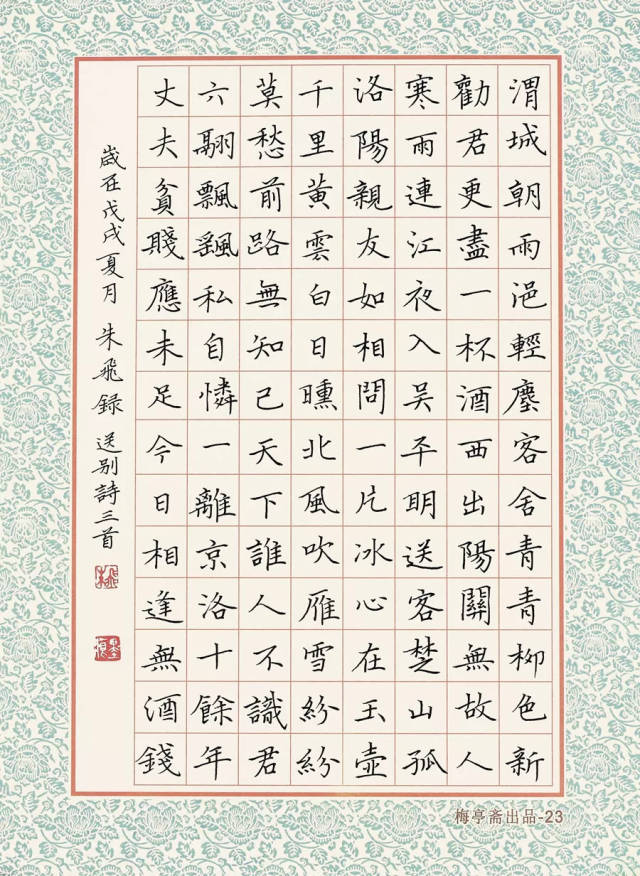 渭城朝雨浥輕塵客舍青青柳色新
勸君更盡一杯酒西出陽關無故人
寒雨連江夜入吳平明送客楚山孤
洛陽親友如相問一片冰心在玉壺
千里黃雲白日曛北風吹雁雪紛紛
莫愁前路無知己天下誰人不識君
六翮飄颻私自憐一離京洛十餘年
丈夫貧賤應未足今日相逢無酒錢
歲在戊戌夏月 朱飛録 送别詩三首
梅亭斋出品-23